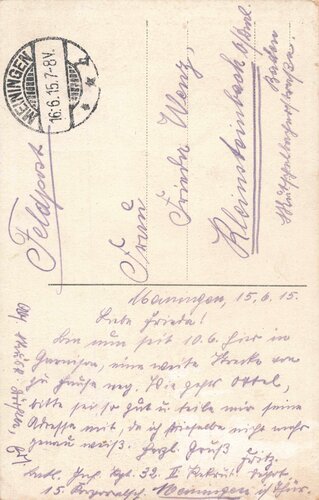 MEININGEN
16.6.15.7-8V.
Feldpost
Frau
Frieda Wenz,
Kleinsteinbach b/
Baden
Meiningen, 15.6.15.
Liebe Frieda!
Bin nun seit 10.6. hier in
Garnison, eine weite Strecke von
zu Hause weg. Wie geht's
bitte sei so gut u. teile mir seine
Adresse mit, da ich dieselbe nicht mehr
genau weiß. Herzl. Gruß Fritz.
Inf. Rgt. 32. II Rekrut.
15. Korporalsch. Meiningen